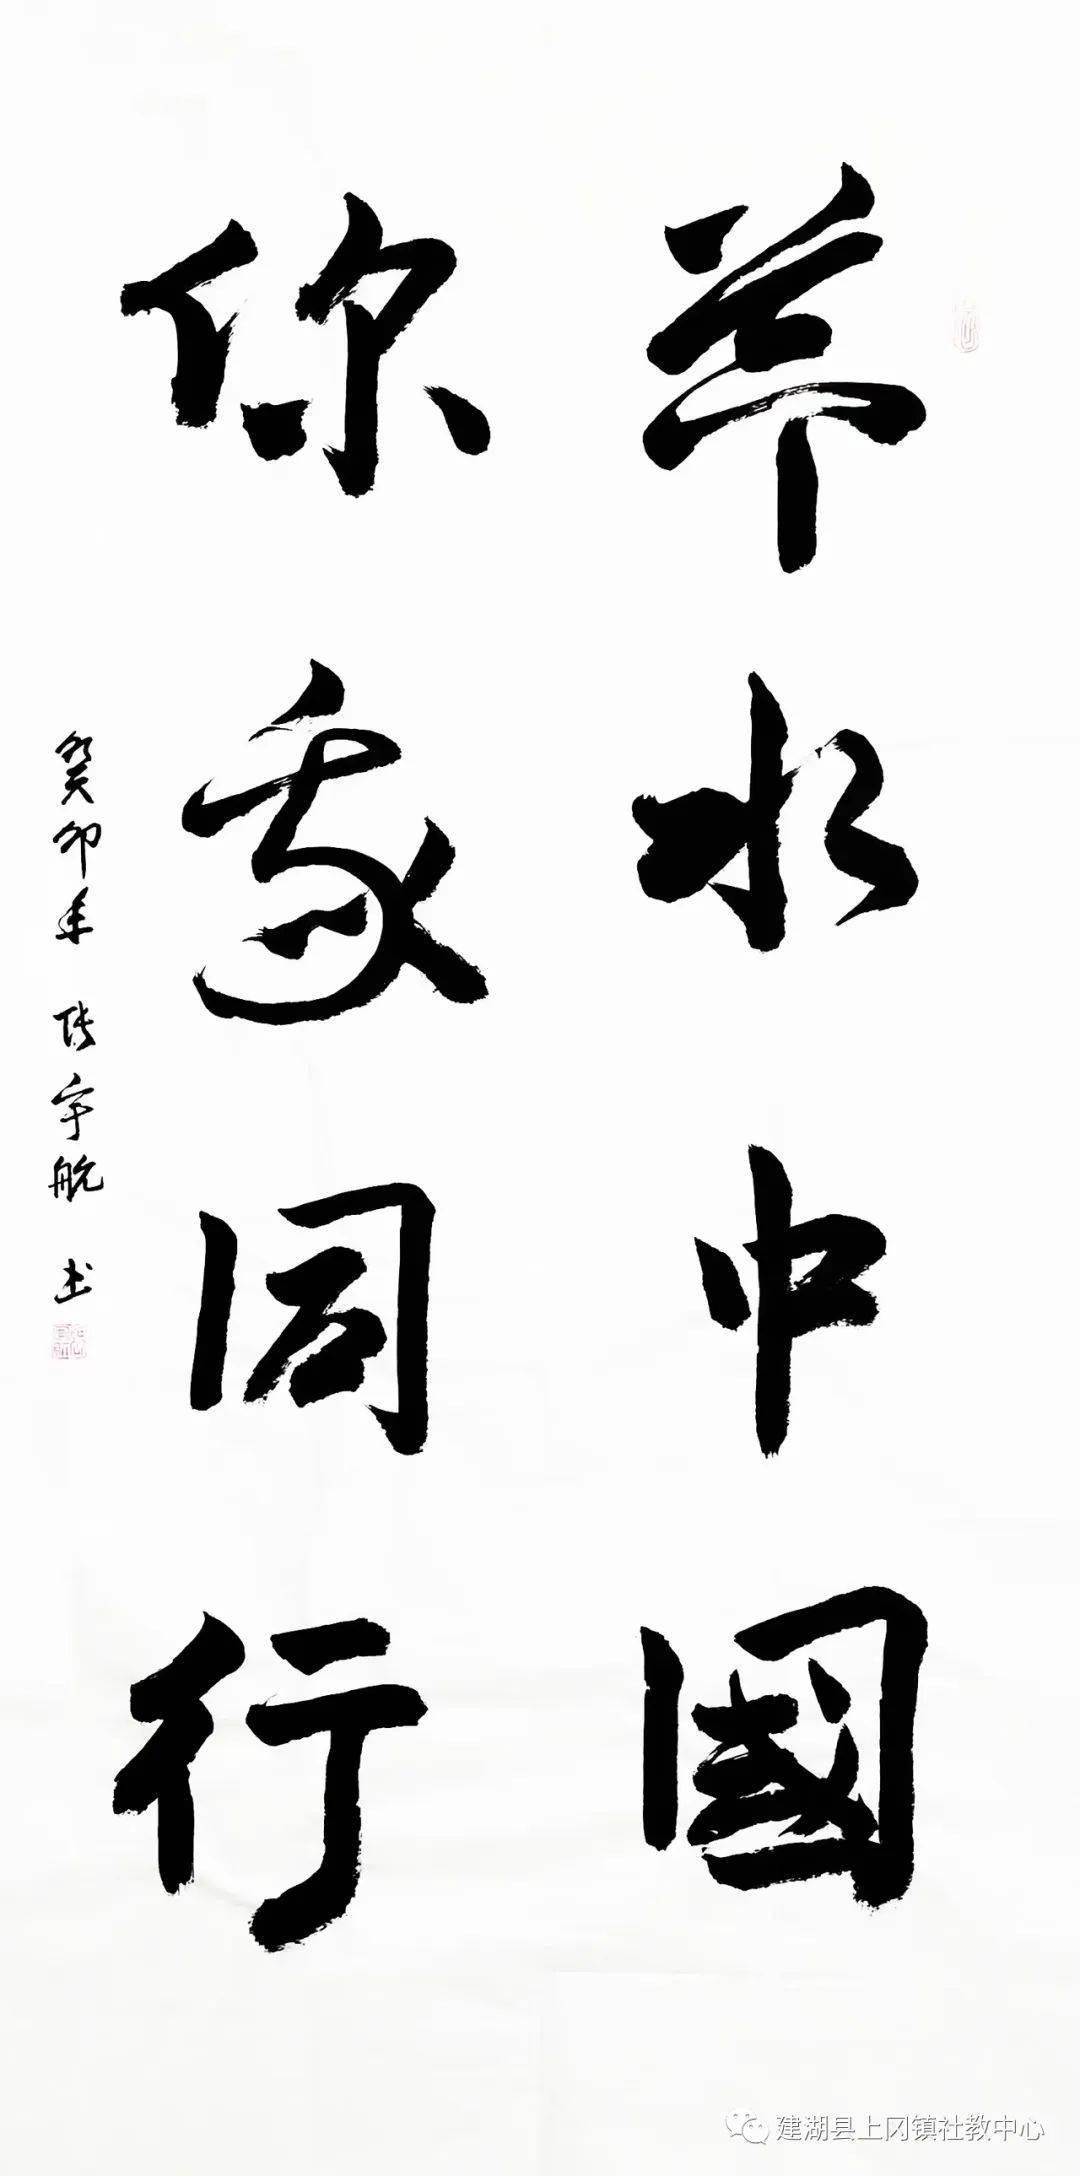 节水中國
你我同行
癸卯年 张宇航 书
建湖县上冈镇社教中心